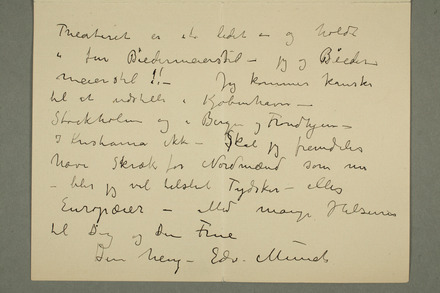 Theateret er
i fin Biedermeierstil – jeg og Bieder-
meierstil !!– Jeg kommer kanske
til at udstille i Kjøbenhavn –
Stockholm og i Bergen og Trondhjem –
I Kristiania ikke – Skal jeg fremdeles
have Skræk for Nordmænd som nu
– blir jeg vel helst Tydsker – eller
Europæer – Med mange Hilsener
til Dig og Din Frue
Din heng– Edv. Munch